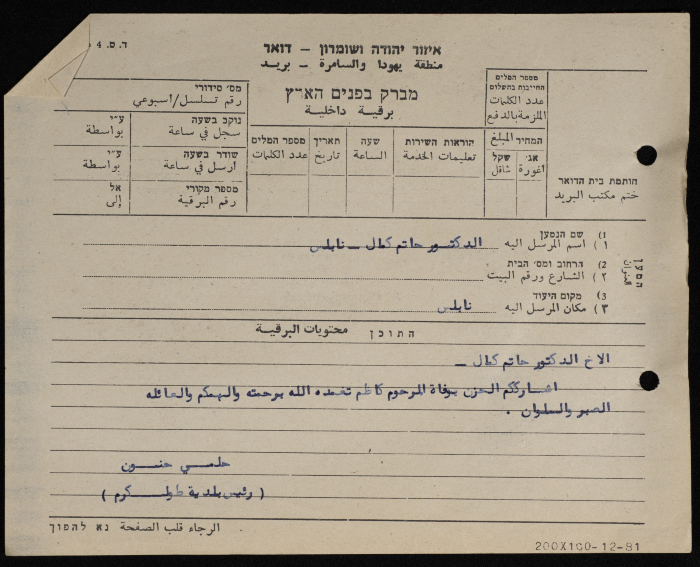 ד.ס. 4
איזור יהודה ושומרון - דואר
منطقة يهودا والسامرة - بريد
מברק בפנים הארץ
برقية داخلية
מספר המלים החייבות בתשלום
عدد الكلمات الملزمة بالدفع
המחיר المبلغ
אג' שקל
أغورة شاقل
הוראות השירות
تعليمات الخدمة
שעה
الساعة
תאריך
تاريخ
מספר המלים
عدد الكلمات
מס' סידורי
رقم تسلسل/اسبوعي
נוקב בשעה ע"י
سجل في ساعة بواسطة
שודר בשעה ע"י
أرسل في ساعة بواسطة
מספר מקורי אל
رقم البرقية إلى
חותמת בית הדואר
ختم مكتب البريد
המען
العنوان
1) שם הנמען
١) اسم المرسل اليه الدكتور حاتم كمال - نابلس
2) הרחוב ומס' הבית
٢) الشارع ورقم البيت
3) מקום היעוד
٣) مكان المرسل اليه نابلس
התוכן محتويات البرقية
الاخ الدكتور حاتم كمال -
اشارككم الحزن بوفاة المرحوم كاظم تغمده الله برحمته والهمكم والعائله
الصبر والسلوان .
حلمي حنون
( رئيس بلدية طولكرم )
الرجاء قلب الصفحة נא להפוך
200X100-12-81